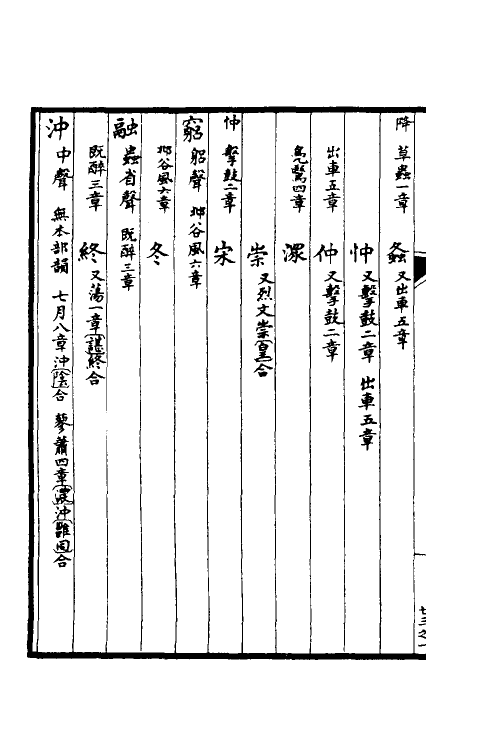 降　草蟲一章　螽又出車五章
忡又擊鼓二章　出車五章
出車五章　仲又擊鼓二章
鳧鷖四章　潀
崇又烈文崇皇合
仲　擊鼓二章　宋
窮　躳聲　邶谷風六章
邶谷風六章　冬
融　蟲省聲　既醉三章
既醉三章　終又蕩一章諶終合
沖　中聲　無本部韻　七月八章沖陰合　蓼蕭四章濃沖雝同合